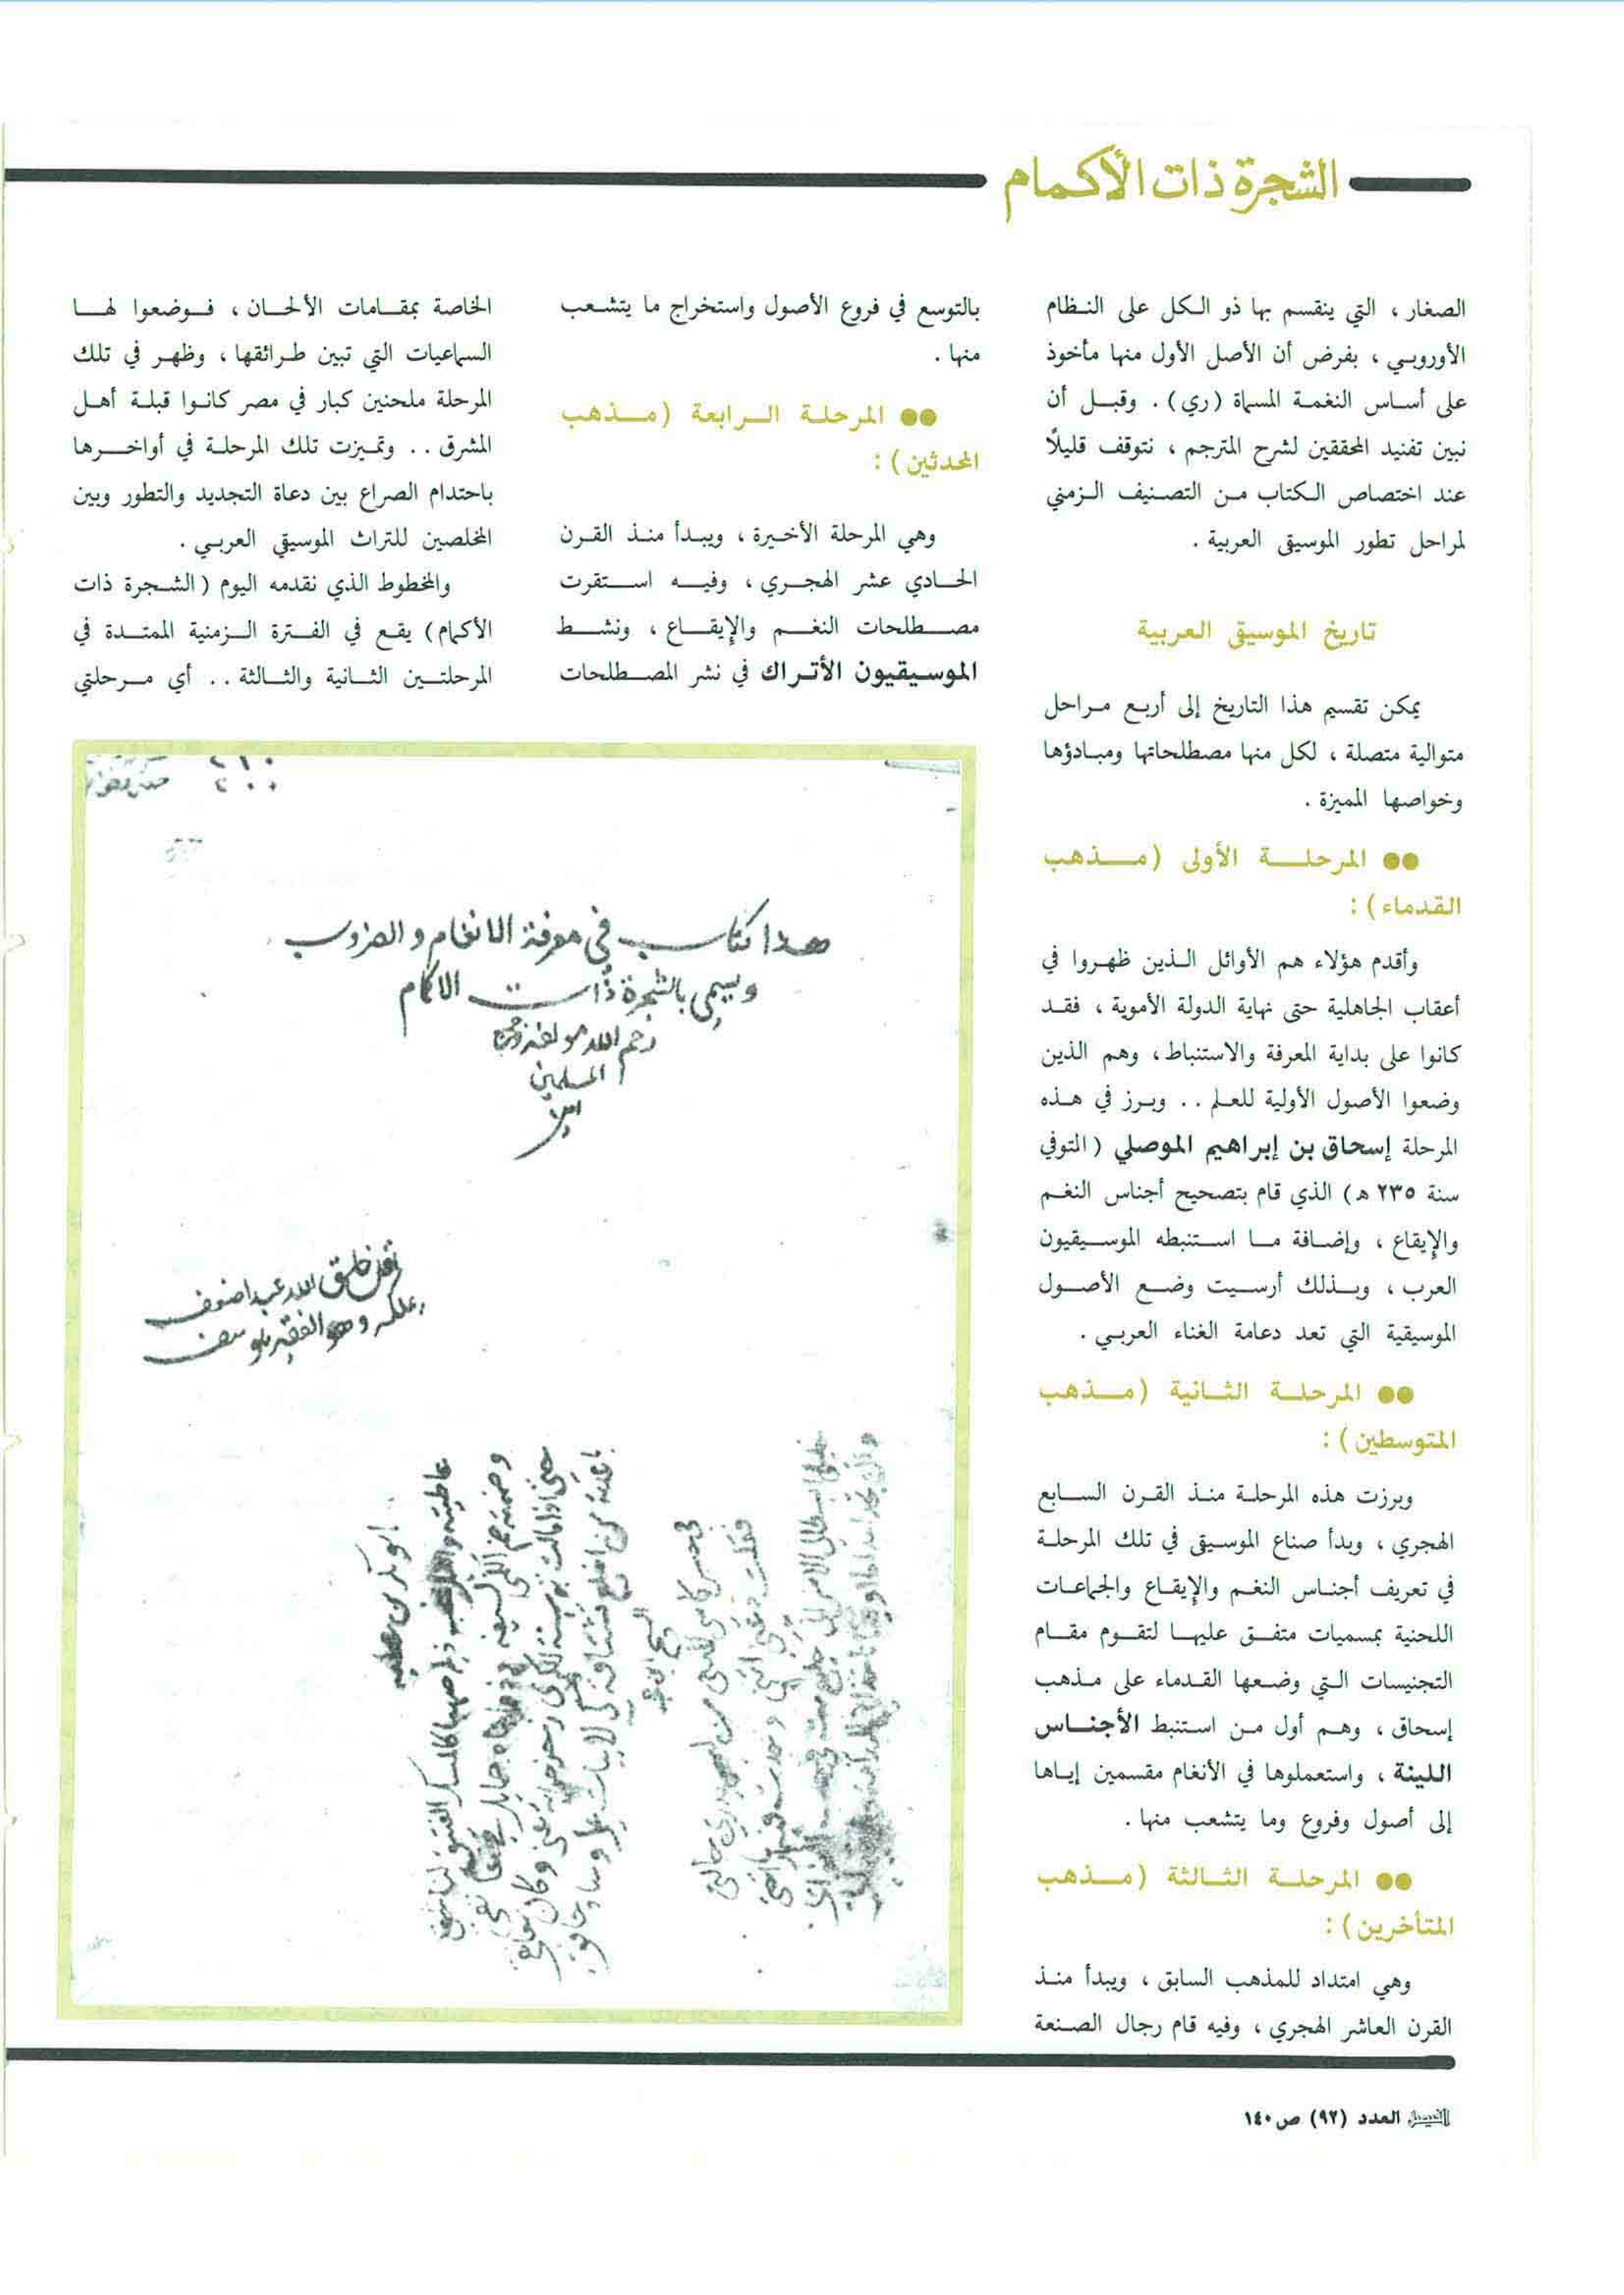 الشجرة ذات الأكمام
الصغار ، التي ينقسم بها ذو الكل على النظام
الأوروبي ، بفرض أن الأصل الأول منها مأخوذ
على أساس النغمة المسماة (ري) . وقبل أن
نبين تفنيد المحققين لشرح المترجم ، نتوقف قليلًا
عند اختصاص الكتاب من التصنيف الزمني
لمراحل تطور الموسيقى العربية .
تاريخ الموسيقى العربية
يمكن تقسيم هذا التاريخ إلى أربع مراحل
متوالية متصلة ، لكل منها مصطلحاتها ومبادؤها
وخواصها المميزة .
●● المرحلة الأولى (مذهب
القدماء) :
وأقدم هؤلاء هم الأوائل الذين ظهروا في
أعقاب الجاهلية حتى نهاية الدولة الأموية ، فقد
كانوا على بداية المعرفة والاستنباط ، وهم الذين
وضعوا الأصول الأولية للعلم .. وبرز في هذه
المرحلة إسحاق بن إبراهيم الموصلي (المتوفي
سنة ٢٣٥ هـ) الذي قام بتصحيح أجناس النغم
والإيقاع ، وإضافة ما استنبطه الموسيقيون
العرب ، وبذلك أرسيت وضع الأصول
الموسيقية التي تعد دعامة الغناء العربي .
●● المرحلة الثانية (مذهب
المتوسطين) :
وبرزت هذه المرحلة منذ القرن السابع
الهجري ، وبدأ صناع الموسيقى في تلك المرحلة
في تعريف أجناس النغم والإيقاع والجماعات
اللحنية بمسميات متفق عليها لتقوم مقام
التجنيسات التي وضعها القدماء على مذهب
إسحاق ، وهم أول من استنبط الأجناس
اللينة ، واستعملوها في الأنغام مقسمين إياها
إلى أصول وفروع وما يتشعب منها .
●● المرحلة الثالثة (مذهب
المتأخرين) :
وهي امتداد للمذهب السابق ، ويبدأ منذ
القرن العاشر الهجري ، وفيه قام رجال الصنعة
بالتوسع في فروع الأصول واستخراج ما يتشعب
منها .
●● المرحلة الرابعة (مذهب
المحدثين) :
وهي المرحلة الأخيرة ، ويبدأ منذ القرن
الحادي عشر الهجري ، وفيه استقرت
مصطلحات النغم والإيقاع ، ونشط
الموسيقيون الأتراك في نشر المصطلحات
الخاصة بمقامات الألحان ، فوضعوا لها
السماعيات التي تبين طرائقها ، وظهر في تلك
المرحلة ملحنين كبار في مصر كانوا قبلة أهل
المشرق .. وتميزت تلك المرحلة في أواخرها
باحتدام الصراع بين دعاة التجديد والتطور وبين
المخلصين للتراث الموسيقي العربي .
والمخطوط الذي نقدمه اليوم (الشجرة ذات
الأكمام) يقع في الفترة الزمنية الممتدة في
المرحلتين الثانية والثالثة .. أي مرحلتي
هذا كتاب في معرفة الانغام والضروب
ويسمى بالشجرة ذات الاكمام
رحم الله مولفه
المسلمين
امين
الفيصل العدد (٩٢) ص ١٤٠